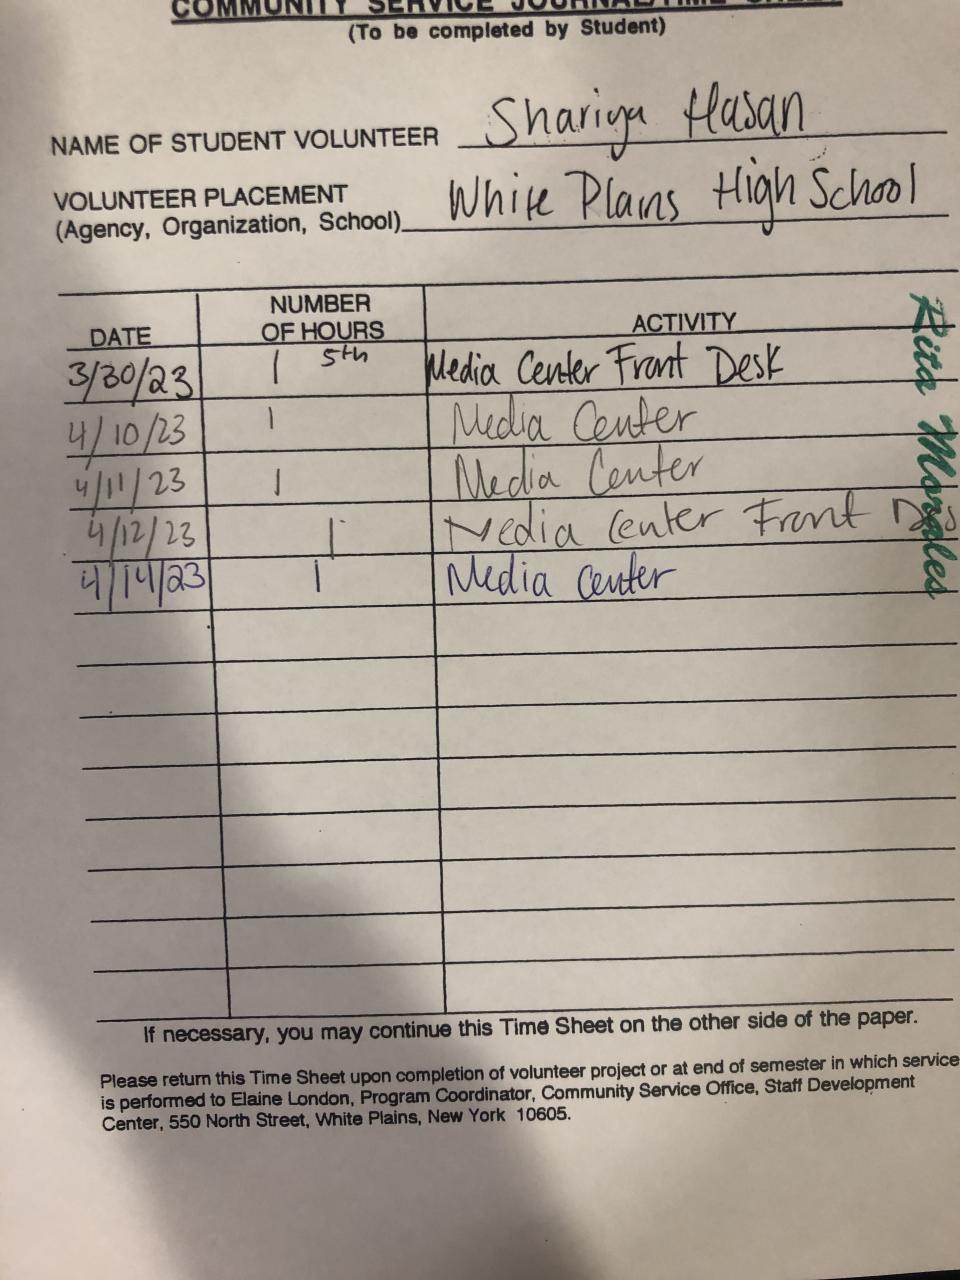 COMMUNITY SERVICE JOURNAL/TIME SHEET
(To be completed by Student)
NAME OF STUDENT VOLUNTEER Shariya Hasan
VOLUNTEER PLACEMENT
(Agency, Organization, School) White Plains High School
DATE NUMBER OF HOURS ACTIVITY
3/30/23 1 5th Media Center Front Desk
4/10/23 1 Media Center
4/11/23 1 Media Center
4/12/23 1 Media Center Front
4/14/23 1 Media Center
Rita Morales
If necessary, you may continue this Time Sheet on the other side of the paper.
Please return this Time Sheet upon completion of volunteer project or at end of semester in which service
is performed to Elaine London, Program Coordinator, Community Service Office, Staff Development
Center, 550 North Street, White Plains, New York 10605.